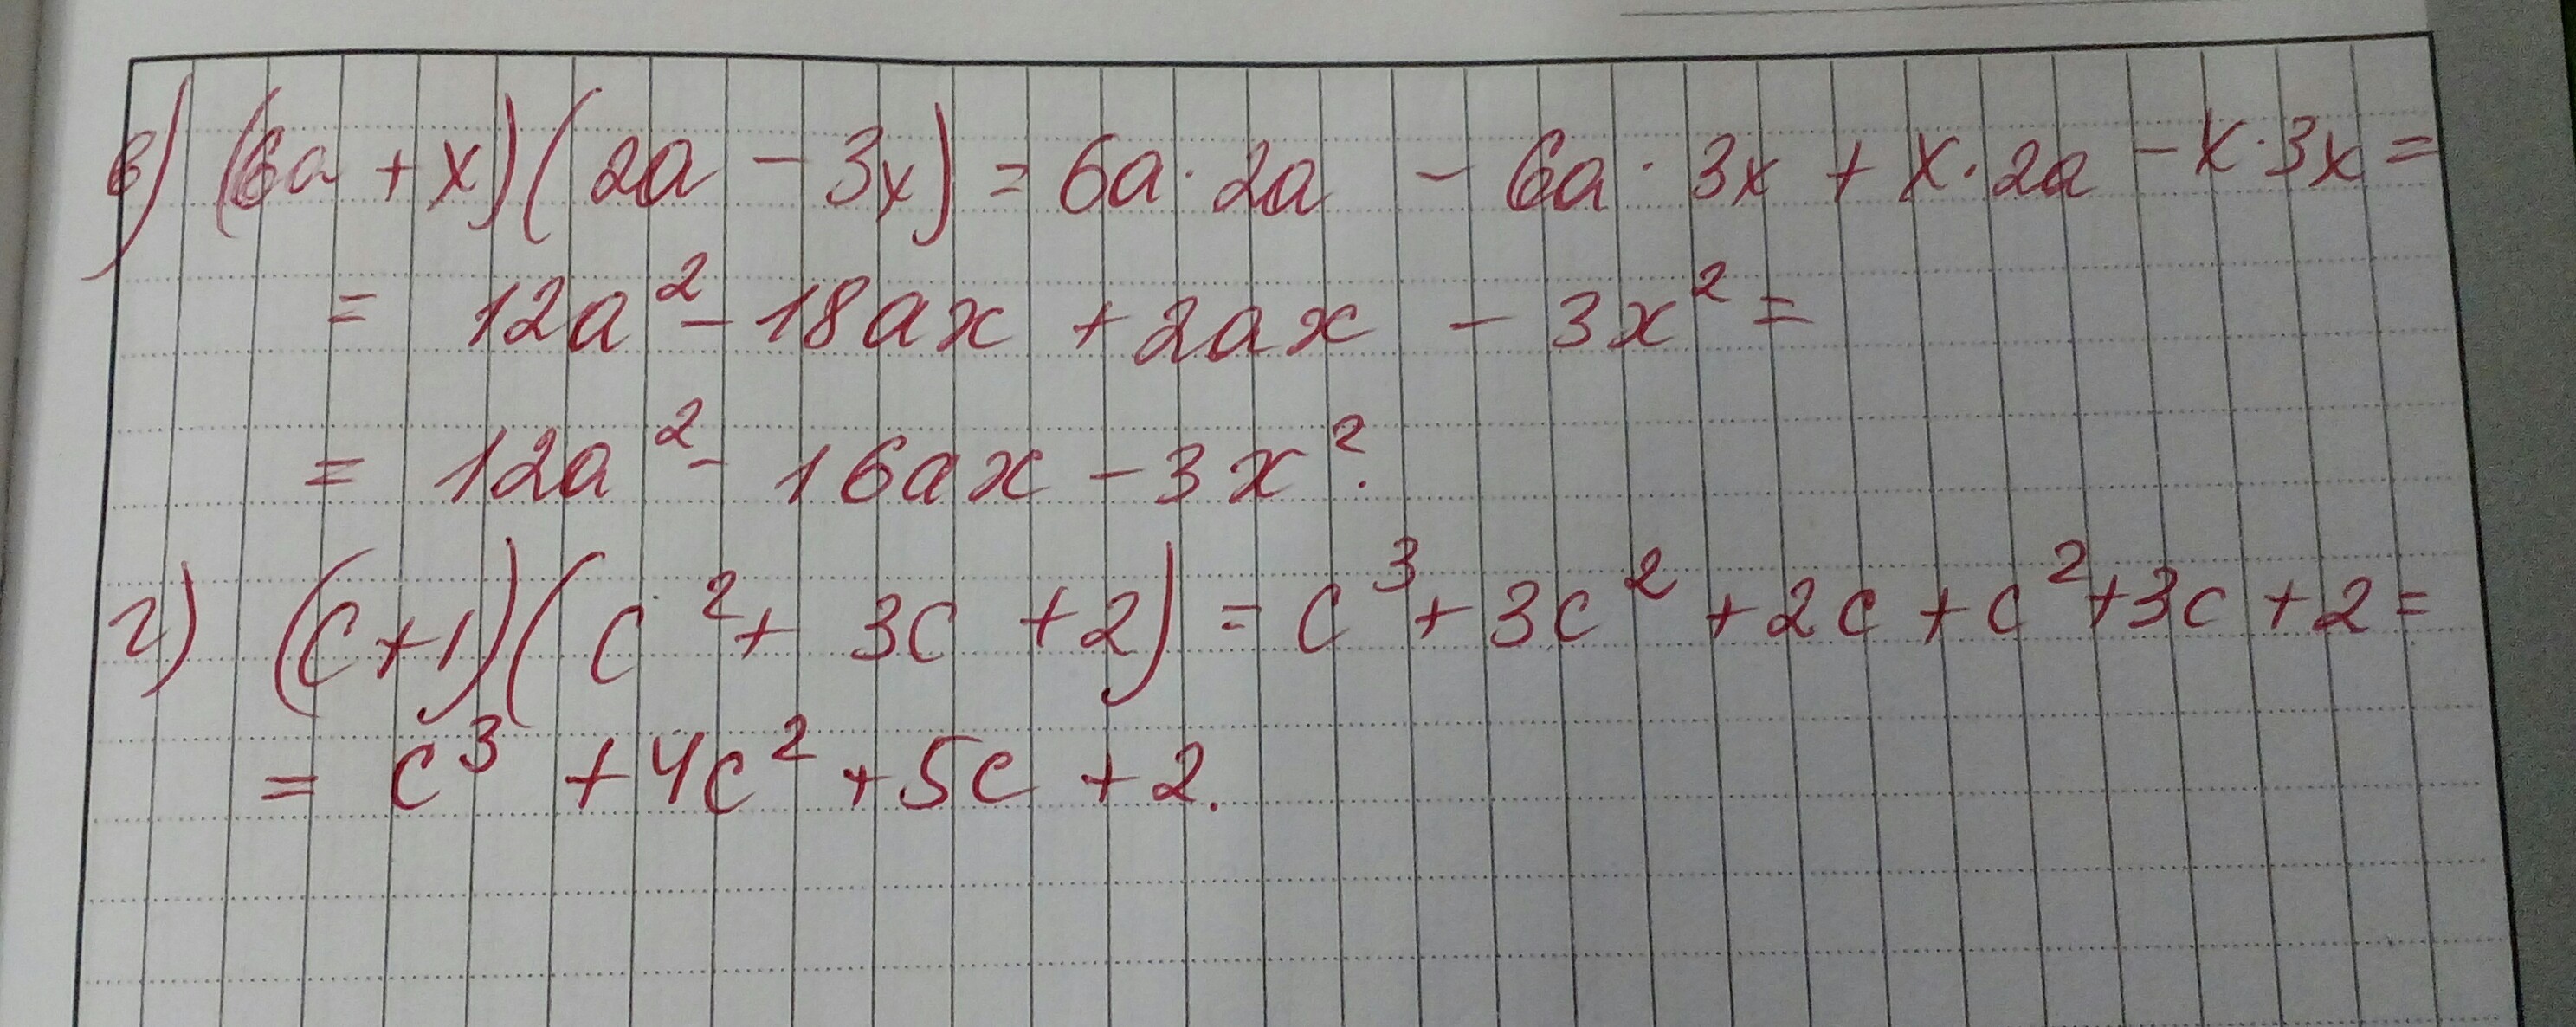 в) (6a + x)(2a - 3x) = 6a · 2a - 6a · 3x + x · 2a - x · 3x =
= 12a² - 18ax + 2ax - 3x² =
= 12a² - 16ax - 3x².
г) (c+1)(c² + 3c + 2) = c³ + 3c² + 2c + c² + 3c + 2 =
= c³ + 4c² + 5c + 2.